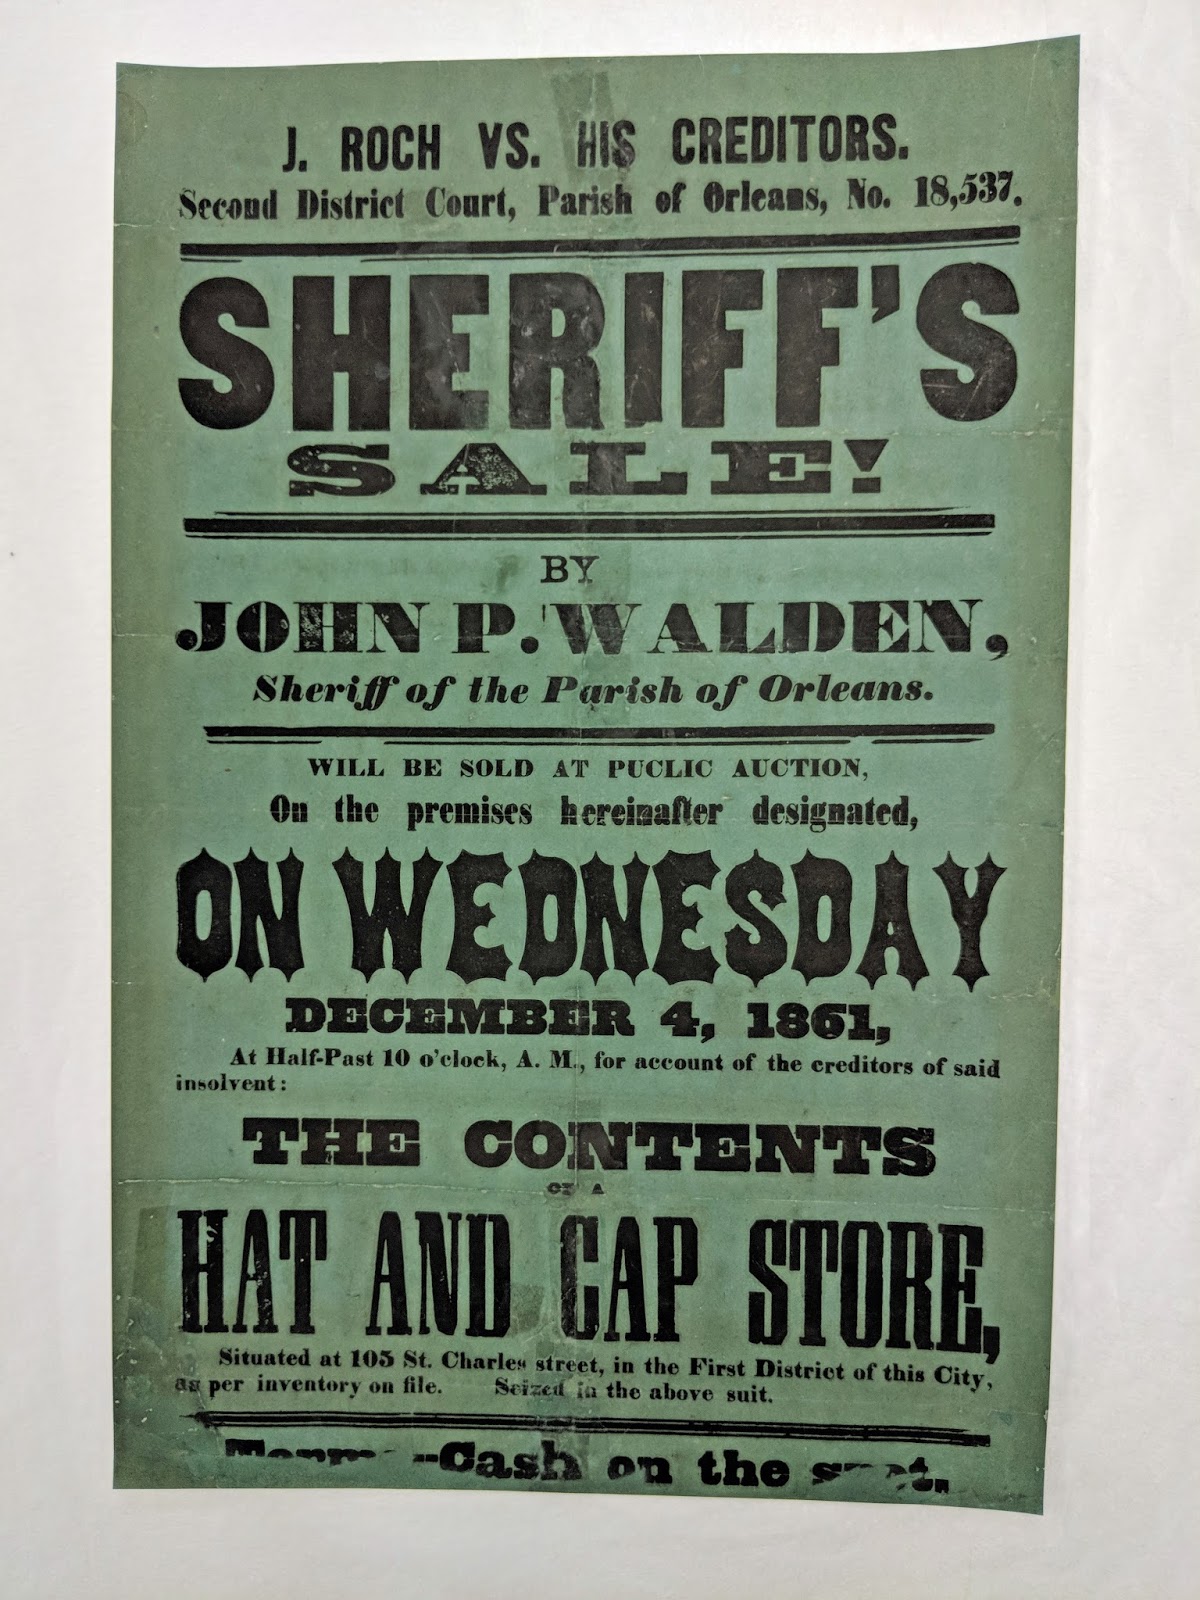 J. ROCH VS. HIS CREDITORS.
Second District Court, Parish of Orleans, No. 18,537.
SHERIFF'S
SALE!
BY
JOHN P. WALDEN,
Sheriff of the Parish of Orleans.
WILL BE SOLD AT PUCLIC AUCTION,
On the premises hereinafter designated,
ON WEDNESDAY
DECEMBER 4, 1861,
At Half-Past 10 o'clock, A. M., for account of the creditors of said
insolvent:
THE CONTENTS
OF A
HAT AND CAP STORE,
Situated at 105 St. Charles street, in the First District of this City,
as per inventory on file. Seized in the above suit.
Terms--Cash on the spot.